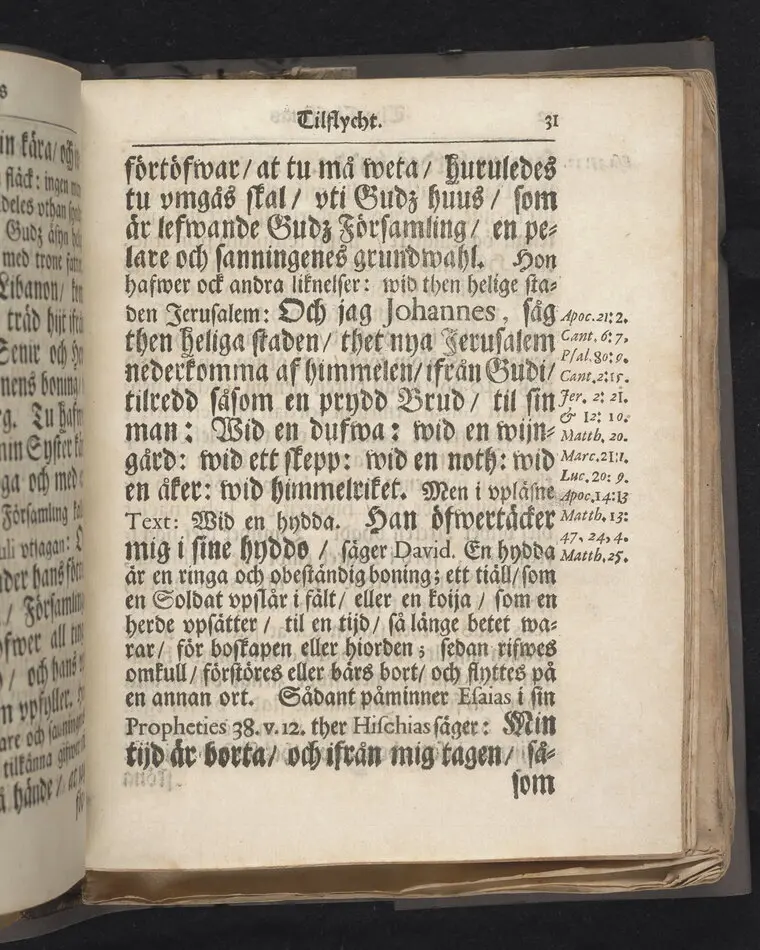 Tilflycht. 31
förtöfwar/ at tu må weta/ huruledes
tu vmgås skal/ vti Gudz huus/ som
är lefwande Gudz Församling/ en pe-
lare och sanningenes grundwahl. Hon
hafwer ock andra liknelser: wid then helige sta-
den Jerusalem: Och jag Johannes, såg
then heliga staden/ thet nya Jerusalem
nederkomma af himmelen/ ifrån Gudi/
tilredd såsom en prydd Brud/ til sin
man: Wid en dufwa: wid en wijn-
gård: wid ett skepp: wid en noth: wid
en åker: wid himmelriket. Men i vpläsne
Text: Wid en hydda. Han öfwertäcker
mig i sine hyddo/ säger David. En hydda
är en ringa och obeständig boning; ett tiäll/ som
en Soldat vpslår i fält/ eller en koija/ som en
herde vpsätter/ til en tijd/ så länge betet wa-
rar/ för boskapen eller hiorden; sedan rifwes
omkull/ förstöres eller bärs bort/ och flyttes på
en annan ort. Sådant påminner Esaias i sin
Propheties 38. v. 12. ther Hischias säger: Min
tijd är borta/ och ifrån mig tagen/ så-
som
Apoc. 21: 2.
Cant. 6: 7.
Psal. 80: 9.
Cant. 2: 15.
Jer. 2: 21.
& 12: 10.
Matth. 20.
Marc. 21: 1.
Luc. 20: 9.
Apoc. 14: 13
Matth. 13:
47, 24, 4.
Matth. 25.